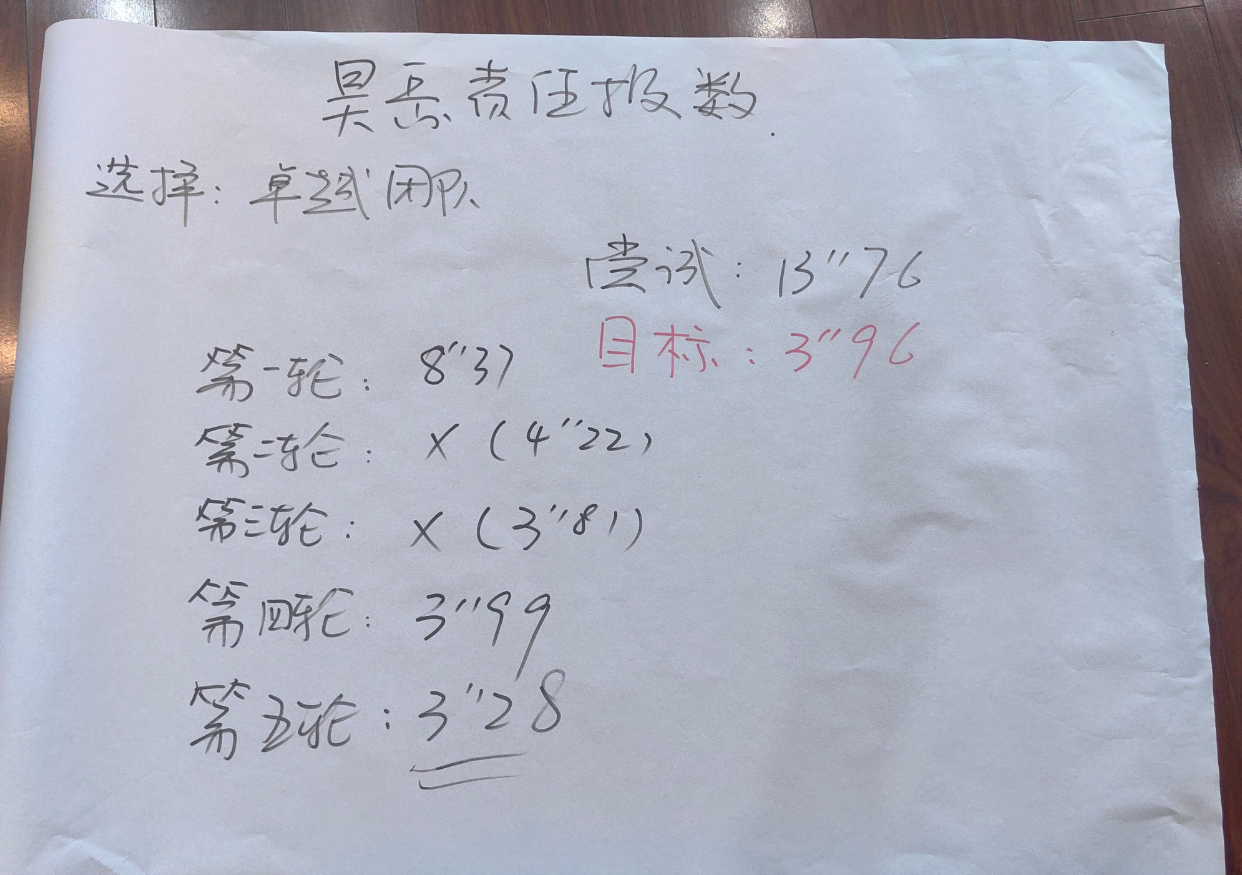 昊岳责任报数.
选择: 卓越团队
尝试: 13"76
目标: 3"96
第一轮: 8"37
第二轮: X (4"22)
第三轮: X (3"81)
第四轮: 3"99
第五轮: 3"28